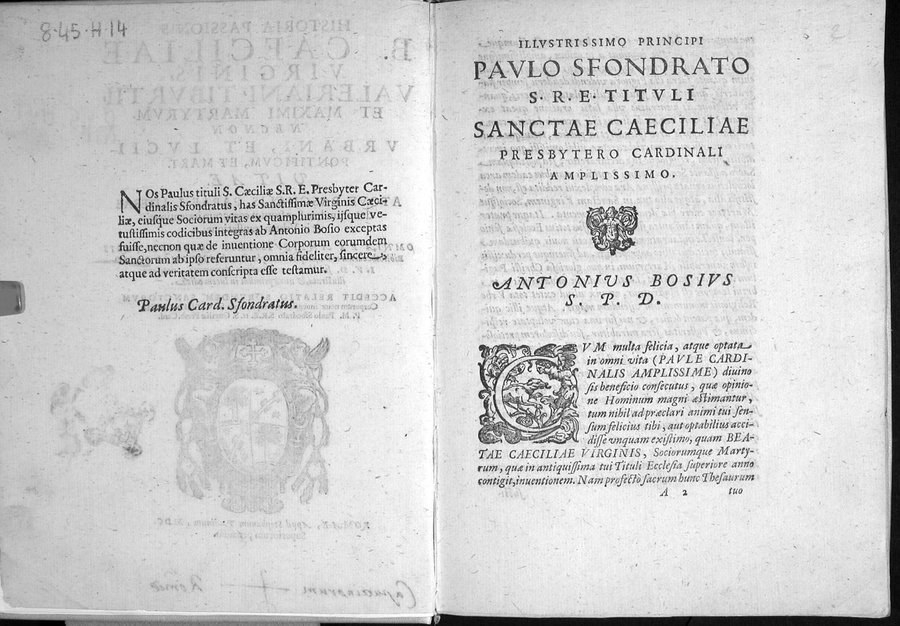 8·45·H·14
NOs Paulus tituli S. Cæciliæ S.R.E. Presbyter Car-
dinalis Sfondratus, has Sanctissimæ Virginis Cæci-
liæ, eiusque Sociorum vitas ex quamplurimis, ijsque ve-
tustissimis codicibus integras ab Antonio Bosio exceptas
fuisse, necnon quæ de inuentione Corporum eorumdem
Sanctorum ab ipso referuntur, omnia fideliter, sincere,
atque ad veritatem conscripta esse testamur.
Paulus Card. Sfondratus.
ILLVSTRISSIMO PRINCIPI
PAVLO SFONDRATO
S. R. E. TITVLI
SANCTAE CAECILIAE
PRESBYTERO CARDINALI
AMPLISSIMO.
ANTONIVS BOSIVS
S. P. D.
CVM multa felicia, atque optata
in omni vita (PAVLE CARDI-
NALIS AMPLISSIME) diuino
sis beneficio consecutus, quæ opinio-
ne Hominum magni æstimantur,
tum nihil ad præclari animi tui sen-
sum felicius tibi, aut optabilius acci-
disse vnquam existimo, quam BEA-
TAE CAECILIAE VIRGINIS, Sociorumque Marty-
rum, quæ in antiquissima tui Tituli Ecclesia superiore anno
contigit, inuentionem. Nam profecto sacrum hunc Thesaurum
A 2 tuo